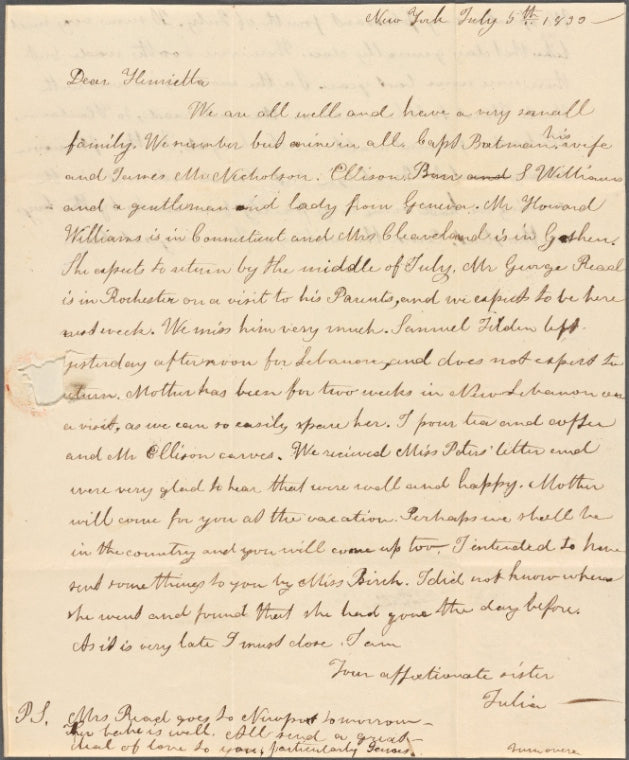 New York July 5th 1833
Dear Henrietta
We are all well and have a very small
family. We number but nine in all. Capt Bateman his wife
and James McNicholson. Ellison, and S Williams
and a gentleman and lady from Geneva. Mr Howard
Williams is in Connecticut and Mrs Cleaveland is in Goshen.
She expects to return by the middle of July. Mr George Read
is in Rochester on a visit to his Parents, and we expect to be here
next week. We miss him very much. Samuel Tilden left
yesterday afternoon for Lebanon, and does not expect to
return. Mother has been for two weeks in New Lebanon on
a visit, as we can so easily spare her. I pour tea and coffee
and Mr Ellison carves. We recieved Miss Peters' letter and
were very glad to hear that were well and happy. Mother
will come for you at the vacation. Perhaps we shall be
in the country and you will come up too. I intended to have
sent some things to you by Miss Birch. I did not know when
she went and found that she had gone the day before.
As it is very late I must close. I am
Your affectionate sister
Julia
P.S. Mrs Read goes to Newport tomorrow
Her babe is well. All send a great
deal of love to you, particularly
turn over